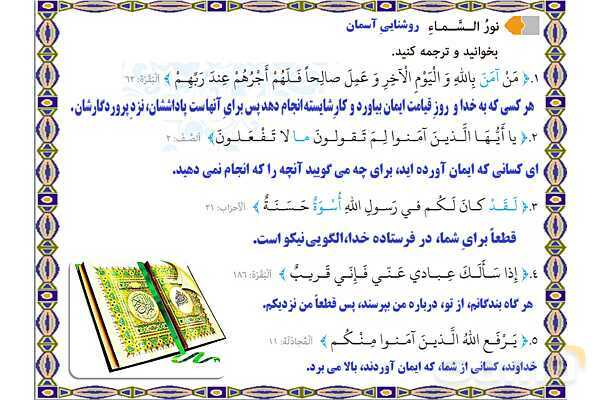 نورُ السَّماءِ روشنایی آسمان
بخوانید و ترجمه کنید.
۱. ﴿ مَنْ آمَنَ بِاللهِ وَ الْيَوْمِ الْآخِرِ وَ عَمِلَ صالِحاً فَلَهُمْ أَجْرُهُمْ عِندَ رَبِّهِمْ ﴾ اَلْبَقَرَة: ۶۲
هر کسی که به خدا و روز قیامت ایمان بیاورد و کارِ شایسته انجام دهد پس برای آنهاست پاداششان، نزد پروردگارشان.
۲. ﴿ يا أَيُّهَا الَّذينَ آمَنوا لِمَ تَقولونَ ما لا تَفْعَلونَ ﴾ اَلصَّف: ۲
ای کسانی که ایمان آورده اید، برای چه می گویید آنچه را که انجام نمی دهید.
۳. ﴿ لَقَدْ كانَ لَكُم في رَسولِ اللهِ أُسْوَةٌ حَسَنَةٌ ﴾ اَلْأَحزاب: ۲۱
قطعاً برایِ شما، در فرستاده خدا،الگویی نیکو است.
۴. ﴿ إذا سَأَلَكَ عِبادي عَنّي فَإنّي قَريبٌ ﴾ اَلْبَقَرَة: ۱۸۶
هر گاه بندگانم، از تو، درباره من بپرسند، پس قطعاً من نزدیکم.
۵. ﴿ يَرْفَعِ اللهُ الَّذينَ آمَنوا مِنْكُم ﴾ اَلْمُجادَلَة: ۱۱
خداوند، کسانی از شما، که ایمان آوردند، بالا می برد.